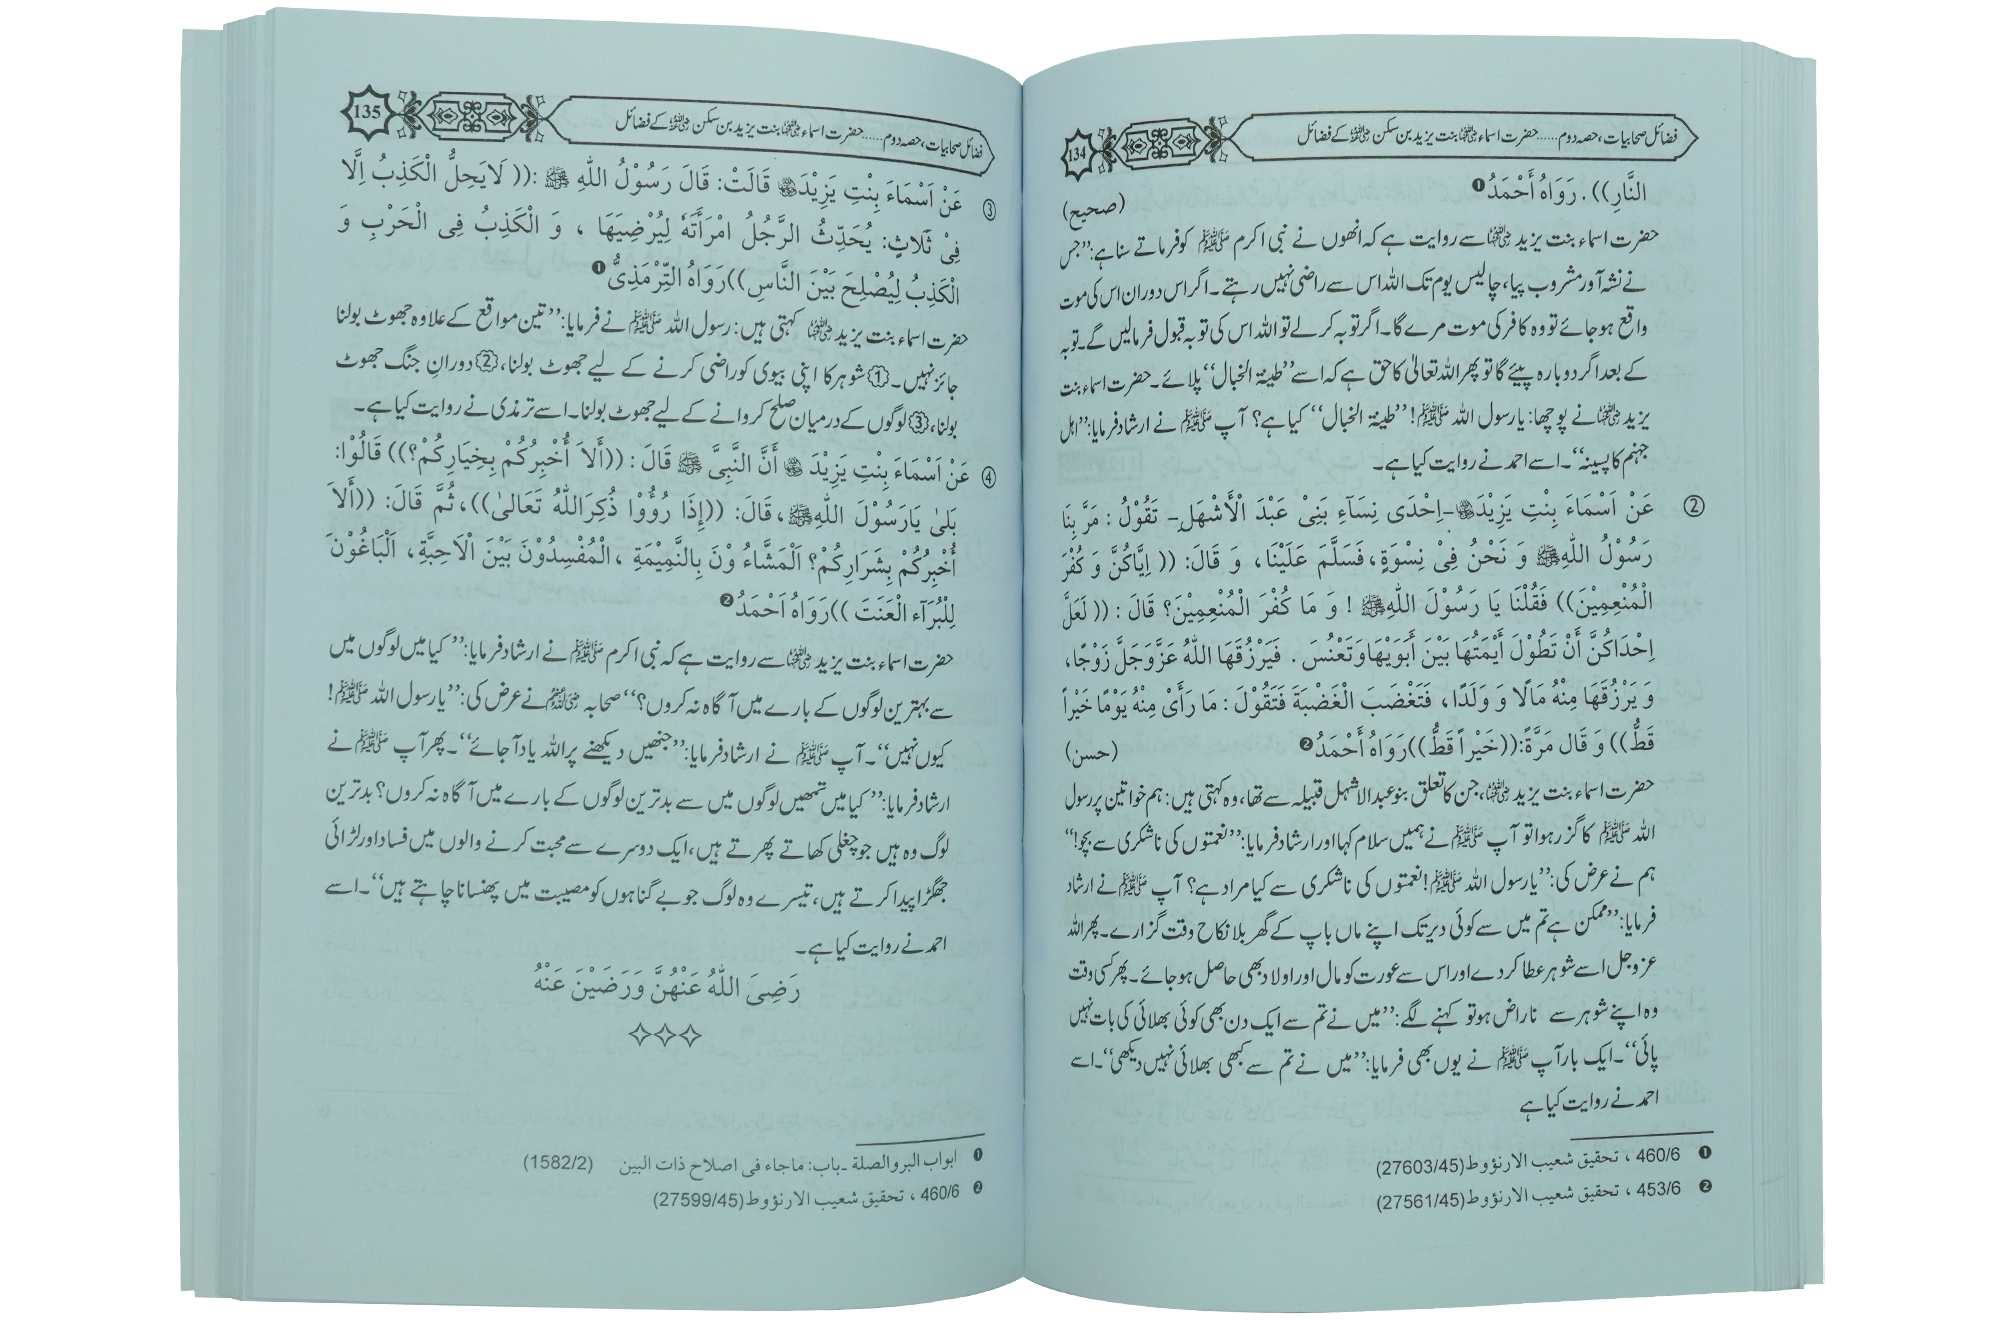 فضائل صحابیات، حصہ دوم ...... حضرت اسماء رضی اللہ عنہا بنت یزید بن سکن رضی اللہ عنہ کے فضائل
134
النَّارِ)) . رَوَاهُ أَحْمَدُ ❶
(صحیح)
حضرت اسماء بنت یزید رضی اللہ عنہا سے روایت ہے کہ انھوں نے نبی اکرم ﷺ کو فرماتے سنا ہے: ’’جس
نے نشہ آور مشروب پیا، چالیس یوم تک اللہ اس سے راضی نہیں رہتے۔ اگر اس دوران اس کی موت
واقع ہو جائے تو وہ کافر کی موت مرے گا۔ اگر توبہ کر لے تو اللہ اس کی توبہ قبول فرمالیں گے۔ توبہ
کے بعد اگر دوبارہ پیئے گا تو پھر اللہ تعالیٰ کا حق ہے کہ اسے ’’طینۃ الخبال‘‘ پلائے۔ حضرت اسماء بنت
یزید رضی اللہ عنہا نے پوچھا: یا رسول اللہ ﷺ! ’’طینۃ الخبال‘‘ کیا ہے؟ آپ ﷺ نے ارشاد فرمایا: ’’اہل
جہنم کا پسینہ‘‘۔ اسے احمد نے روایت کیا ہے۔
② عَنْ اَسْمَاءَ بِنْتِ يَزِيْدَ رضی اللہ عنہا -اِحْدَى نِسَآءِ بَنِىْ عَبْدَ الْأَشْهَلِ- تَقُوْلُ : مَرَّ بِنَا
رَسُوْلُ اللهِ ﷺ وَ نَحْنُ فِىْ نِسْوَةٍ ، فَسَلَّمَ عَلَيْنَا ، وَ قَالَ: (( اِيَّاكُنَّ وَ كُفْرَ
الْمُنْعِمِيْنَ)) فَقُلْنَا يَا رَسُوْلَ اللهِ ﷺ ! وَ مَا كُفْرَ الْمُنْعِمِيْنَ؟ قَالَ : (( لَعَلَّ
اِحْدَاكُنَّ أَنْ تَطُوْلَ أَيْمَتُهَا بَيْنَ أَبَوَيْهَا وَتَعْنُسَ . فَيَرْزُقَهَا اللهُ عَزَّوَجَلَّ زَوْجًا ،
وَ يَرْزُقَهَا مِنْهُ مَالًا وَ وَلَدًا ، فَتَغْضَبَ الْغَضْبَةَ فَتَقُوْلَ : مَا رَأَىْ مِنْهُ يَوْمًا خَيْراً
قَطُّ)) وَ قَالَ مَرَّةً: ((خَيْراً قَطُّ)) رَوَاهُ أَحْمَدُ ❷ (حسن)
حضرت اسماء بنت یزید رضی اللہ عنہا، جن کا تعلق بنو عبدالاشہل قبیلہ سے تھا، وہ کہتی ہیں: ہم خواتین پر رسول
اللہ ﷺ کا گزر ہوا تو آپ ﷺ نے ہمیں سلام کہا اور ارشاد فرمایا: ’’نعمتوں کی ناشکری سے بچو!‘‘
ہم نے عرض کی: ’’یا رسول اللہ ﷺ! نعمتوں کی ناشکری سے کیا مراد ہے؟ آپ ﷺ نے ارشاد
فرمایا: ’’ممکن ہے تم میں سے کوئی دیر تک اپنے ماں باپ کے گھر بلا نکاح وقت گزارے۔ پھر اللہ
عزوجل اسے شوہر عطا کر دے اور اس سے عورت کو مال اور اولاد بھی حاصل ہو جائے۔ پھر کسی وقت
وہ اپنے شوہر سے ناراض ہو تو کہنے لگے: ’’میں نے تم سے ایک دن بھی کوئی بھلائی کی بات نہیں
پائی‘‘۔ ایک بار آپ ﷺ نے یوں بھی فرمایا: ’’میں نے تم سے کبھی بھلائی نہیں دیکھی‘‘۔ اسے
احمد نے روایت کیا ہے
❶ 460/6 ، تحقیق شعیب الارنؤوط (27603/45)
❷ 453/6 ، تحقیق شعیب الارنؤوط (27561/45)
فضائل صحابیات، حصہ دوم ...... حضرت اسماء رضی اللہ عنہا بنت یزید بن سکن رضی اللہ عنہ کے فضائل
135
③ عَنْ اَسْمَاءَ بِنْتِ يَزِيْدَ رضی اللہ عنہا قَالَتْ: قَالَ رَسُوْلُ اللهِ ﷺ :(( لَا يَحِلُّ الْكَذِبُ اِلَّا
فِىْ ثَلَاثٍ: يُحَدِّثُ الرَّجُلُ امْرَأَتَهُ لِيُرْضِيَهَا ، وَ الْكَذِبُ فِى الْحَرْبِ وَ
الْكَذِبُ لِيُصْلِحَ بَيْنَ النَّاسِ)) رَوَاهُ التِّرْمَذِىُّ ❶
حضرت اسماء بنت یزید رضی اللہ عنہا کہتی ہیں: رسول اللہ ﷺ نے فرمایا: ’’تین مواقع کے علاوہ جھوٹ بولنا
جائز نہیں۔ ① شوہر کا اپنی بیوی کو راضی کرنے کے لیے جھوٹ بولنا، ② دورانِ جنگ جھوٹ
بولنا، ③ لوگوں کے درمیان صلح کروانے کے لیے جھوٹ بولنا۔ اسے ترمذی نے روایت کیا ہے۔
④ عَنْ اَسْمَاءَ بِنْتِ يَزِيْدَ رضی اللہ عنہا أَنَّ النَّبِىَّ ﷺ قَالَ : ((أَلاَ أُخْبِرُكُمْ بِخِيَارِكُمْ؟)) قَالُوْا:
بَلىٰ يَارَسُوْلَ اللهِ ﷺ ، قَالَ: ((إِذَا رُؤُوْا ذُكِرَاللهُ تَعَالىٰ)) ، ثُمَّ قَالَ: ((أَلاَ
أُخْبِرُكُمْ بِشَرَارِكُمْ؟ اَلْمَشَّاءُ وْنَ بِالنَّمِيْمَةِ ، الْمُفْسِدُوْنَ بَيْنَ الْاَحِبَّةِ ، اَلْبَاغُوْنَ
لِلْبُرَآءِ الْعَنَتَ )) رَوَاهُ اَحْمَدُ ❷
حضرت اسماء بنت یزید رضی اللہ عنہا سے روایت ہے کہ نبی اکرم ﷺ نے ارشاد فرمایا: ’’کیا میں لوگوں میں
سے بہترین لوگوں کے بارے میں آگاہ نہ کروں؟‘‘ صحابہ رضی اللہ عنہم نے عرض کی: ’’یا رسول اللہ ﷺ!
کیوں نہیں‘‘۔ آپ ﷺ نے ارشاد فرمایا: ’’جنھیں دیکھنے پر اللہ یاد آ جائے‘‘۔ پھر آپ ﷺ نے
ارشاد فرمایا: ’’کیا میں تمھیں لوگوں میں سے بدترین لوگوں کے بارے میں آگاہ نہ کروں؟ بدترین
لوگ وہ ہیں جو چغلی کھاتے پھرتے ہیں، ایک دوسرے سے محبت کرنے والوں میں فساد اور لڑائی
جھگڑا پیدا کرتے ہیں، تیسرے وہ لوگ جو بے گناہوں کو مصیبت میں پھنسانا چاہتے ہیں‘‘۔ اسے
احمد نے روایت کیا ہے۔
رَضِىَ اللهُ عَنْهُنَّ وَرَضَيْنَ عَنْهُ
❶ ابواب البر والصلة ـ باب: ماجاء فی اصلاح ذات البین (1582/2)
❷ 460/6 ، تحقیق شعیب الارنؤوط (27599/45)